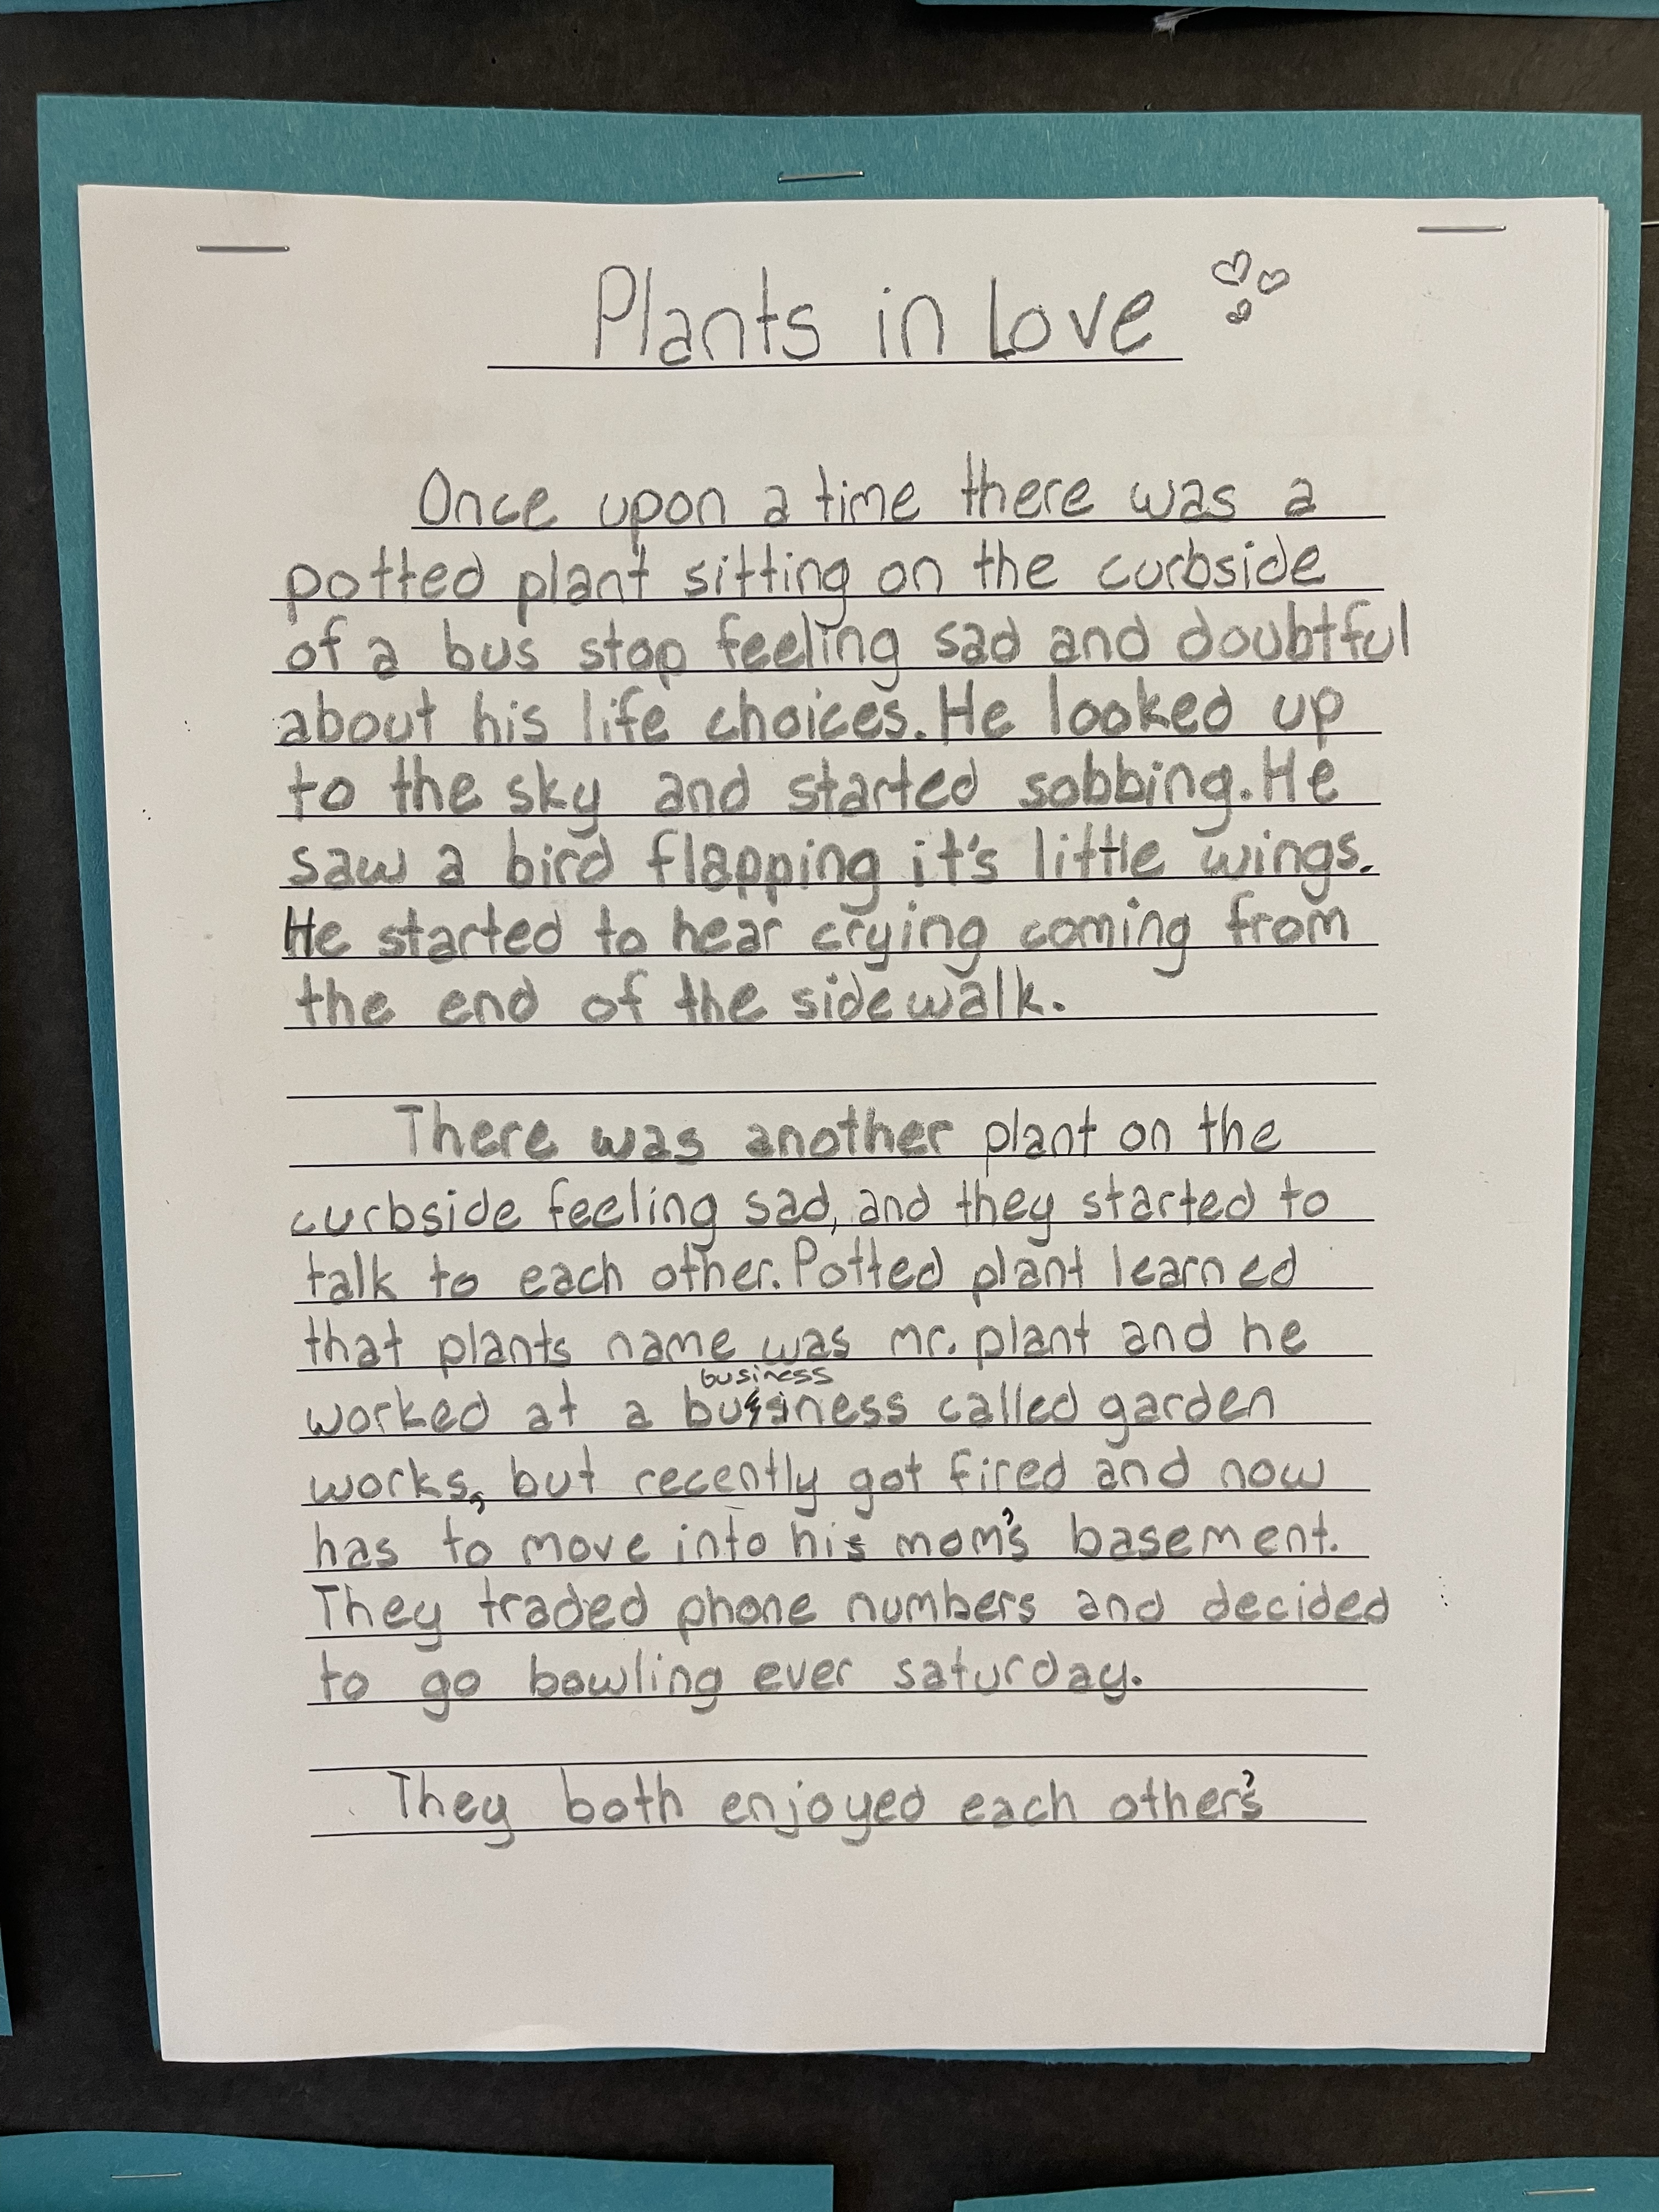 Plants in Love
Once upon a time there was a
potted plant sitting on the curbside
of a bus stop feeling sad and doubtful
about his life choices. He looked up
to the sky and started sobbing. He
saw a bird flapping it's little wings.
He started to hear crying coming from
the end of the sidewalk.
There was another plant on the
curbside feeling sad, and they started to
talk to each other. Potted plant learned
that plants name was mr. plant and he
business
worked at a business called garden
works, but recently got fired and now
has to move into his mom's basement.
They traded phone numbers and decided
to go bowling ever saturday.
They both enjoyed each other's